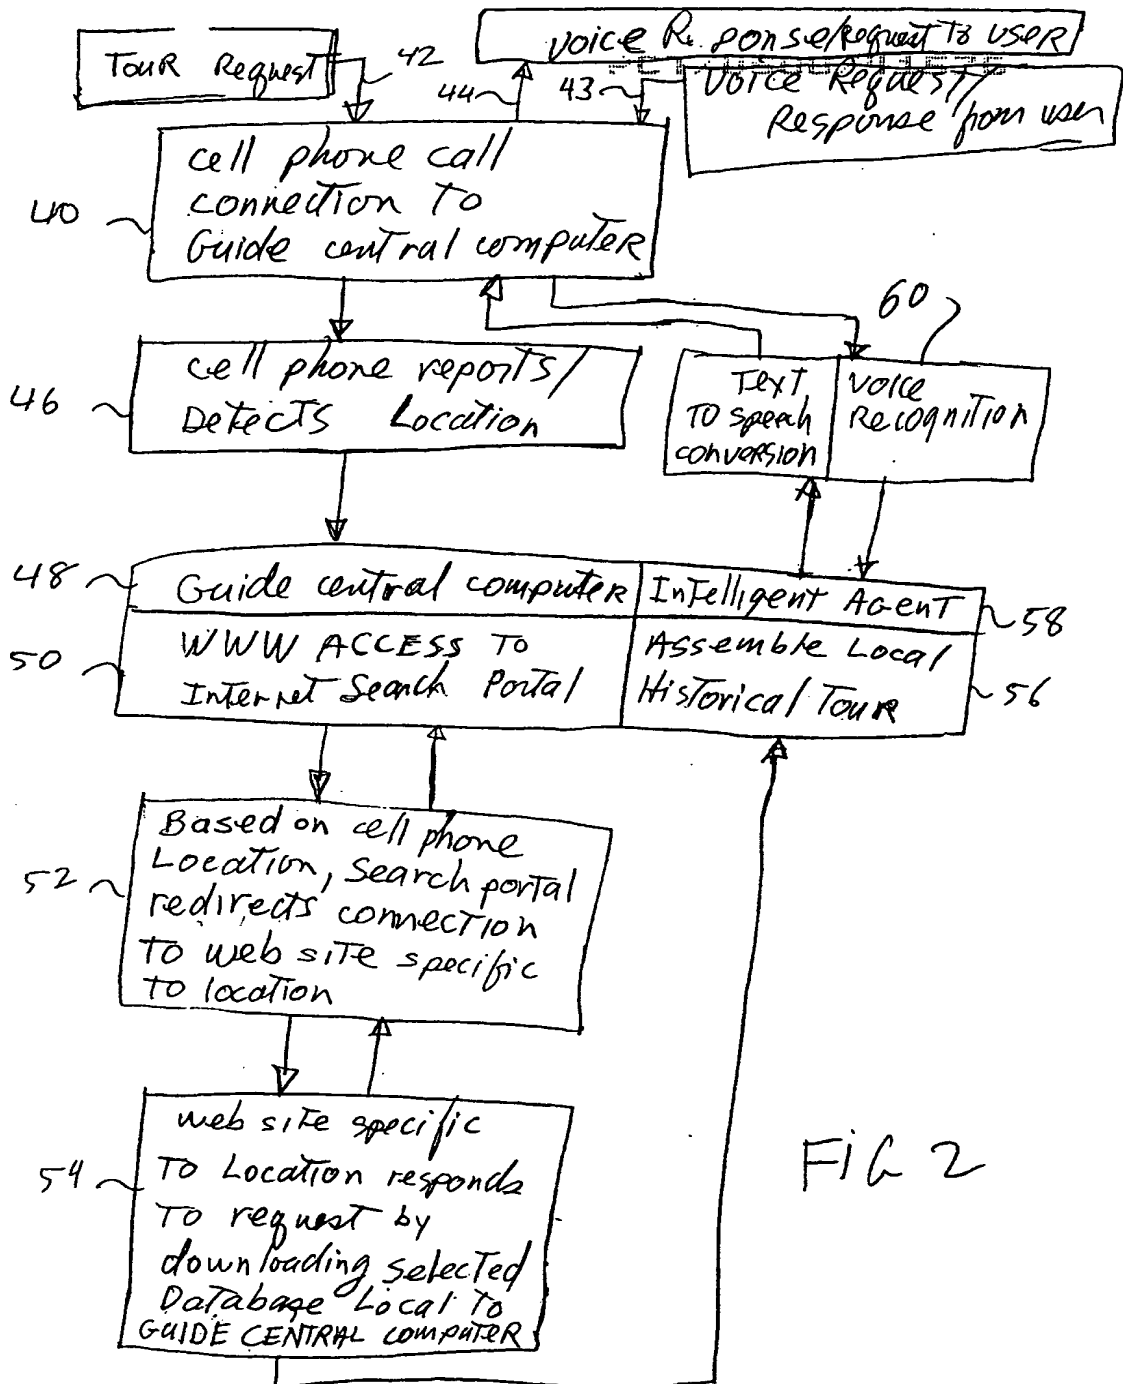 Tour Request
42
Voice Response/Request To USER
44
43
Voice Request/
Response from user
40
Cell phone call
connection To
Guide central computer
60
46
Cell phone reports/
Detects Location
Text
To speech
conversion
Voice
Recognition
48
Guide central computer
Intelligent Agent
58
50
WWW ACCESS TO
Internet Search Portal
Assemble Local
Historical Tour
56
52
Based on cell phone
Location, Search portal
redirects connection
To web site specific
To location
54
web site specific
To Location responds
To request by
downloading selected
Database Local To
GUIDE CENTRAL computer
FiG 2